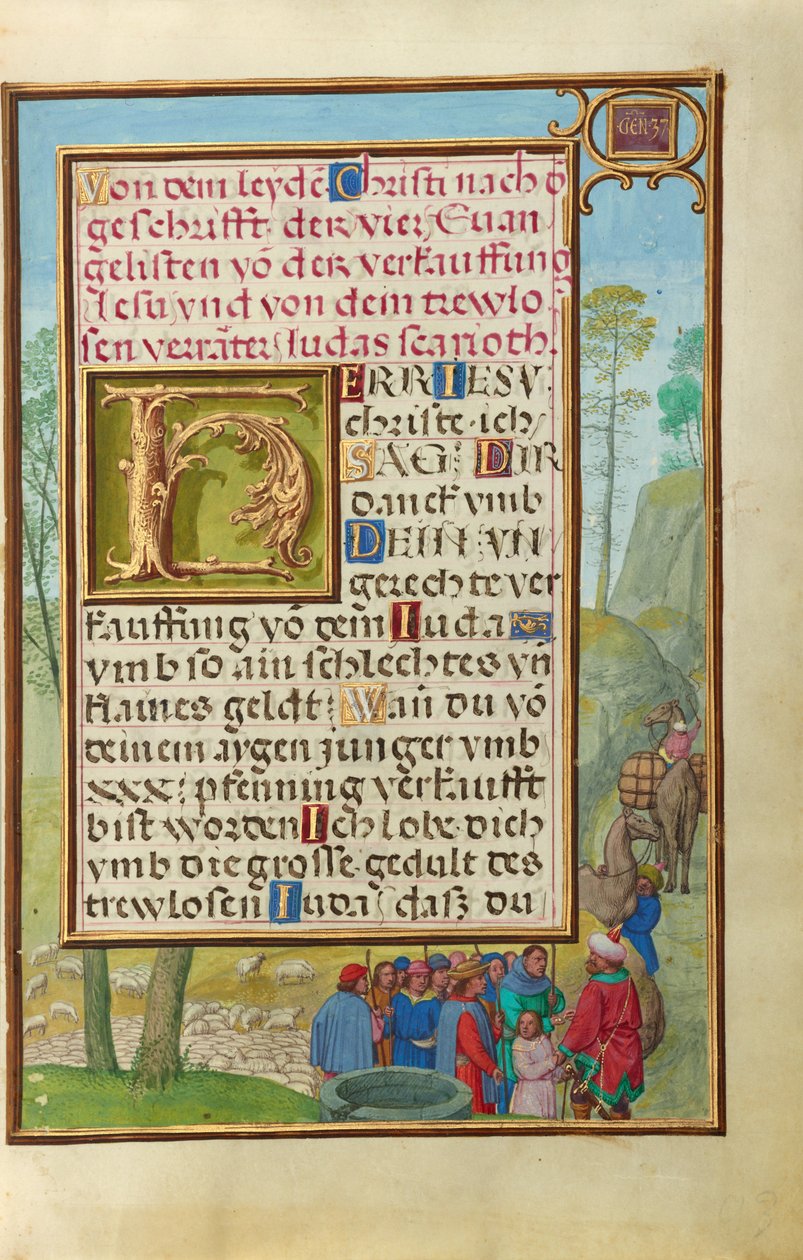 GEN 37
Von dem leydē Christi nach d̄
geschrifft der vier Euan
gelisten vō der verkauffung
Jesu vnd von dem trewlo
sen verräter Iudas scarioth.
HERR IESV
christe ich
SAG DIR
danck vmb
DEIN VN
gerechte ver
kauffung vō dem̄ Iuda
vmb so ain schlechtes vn̄
klaines geldt: Wan̄ du vō
deinem aygen junger vmb
xxx: pfenning verkaufft
bist worden Ich lobe dich
vmb die grosse gedult des
trewlosen Iuda daß du